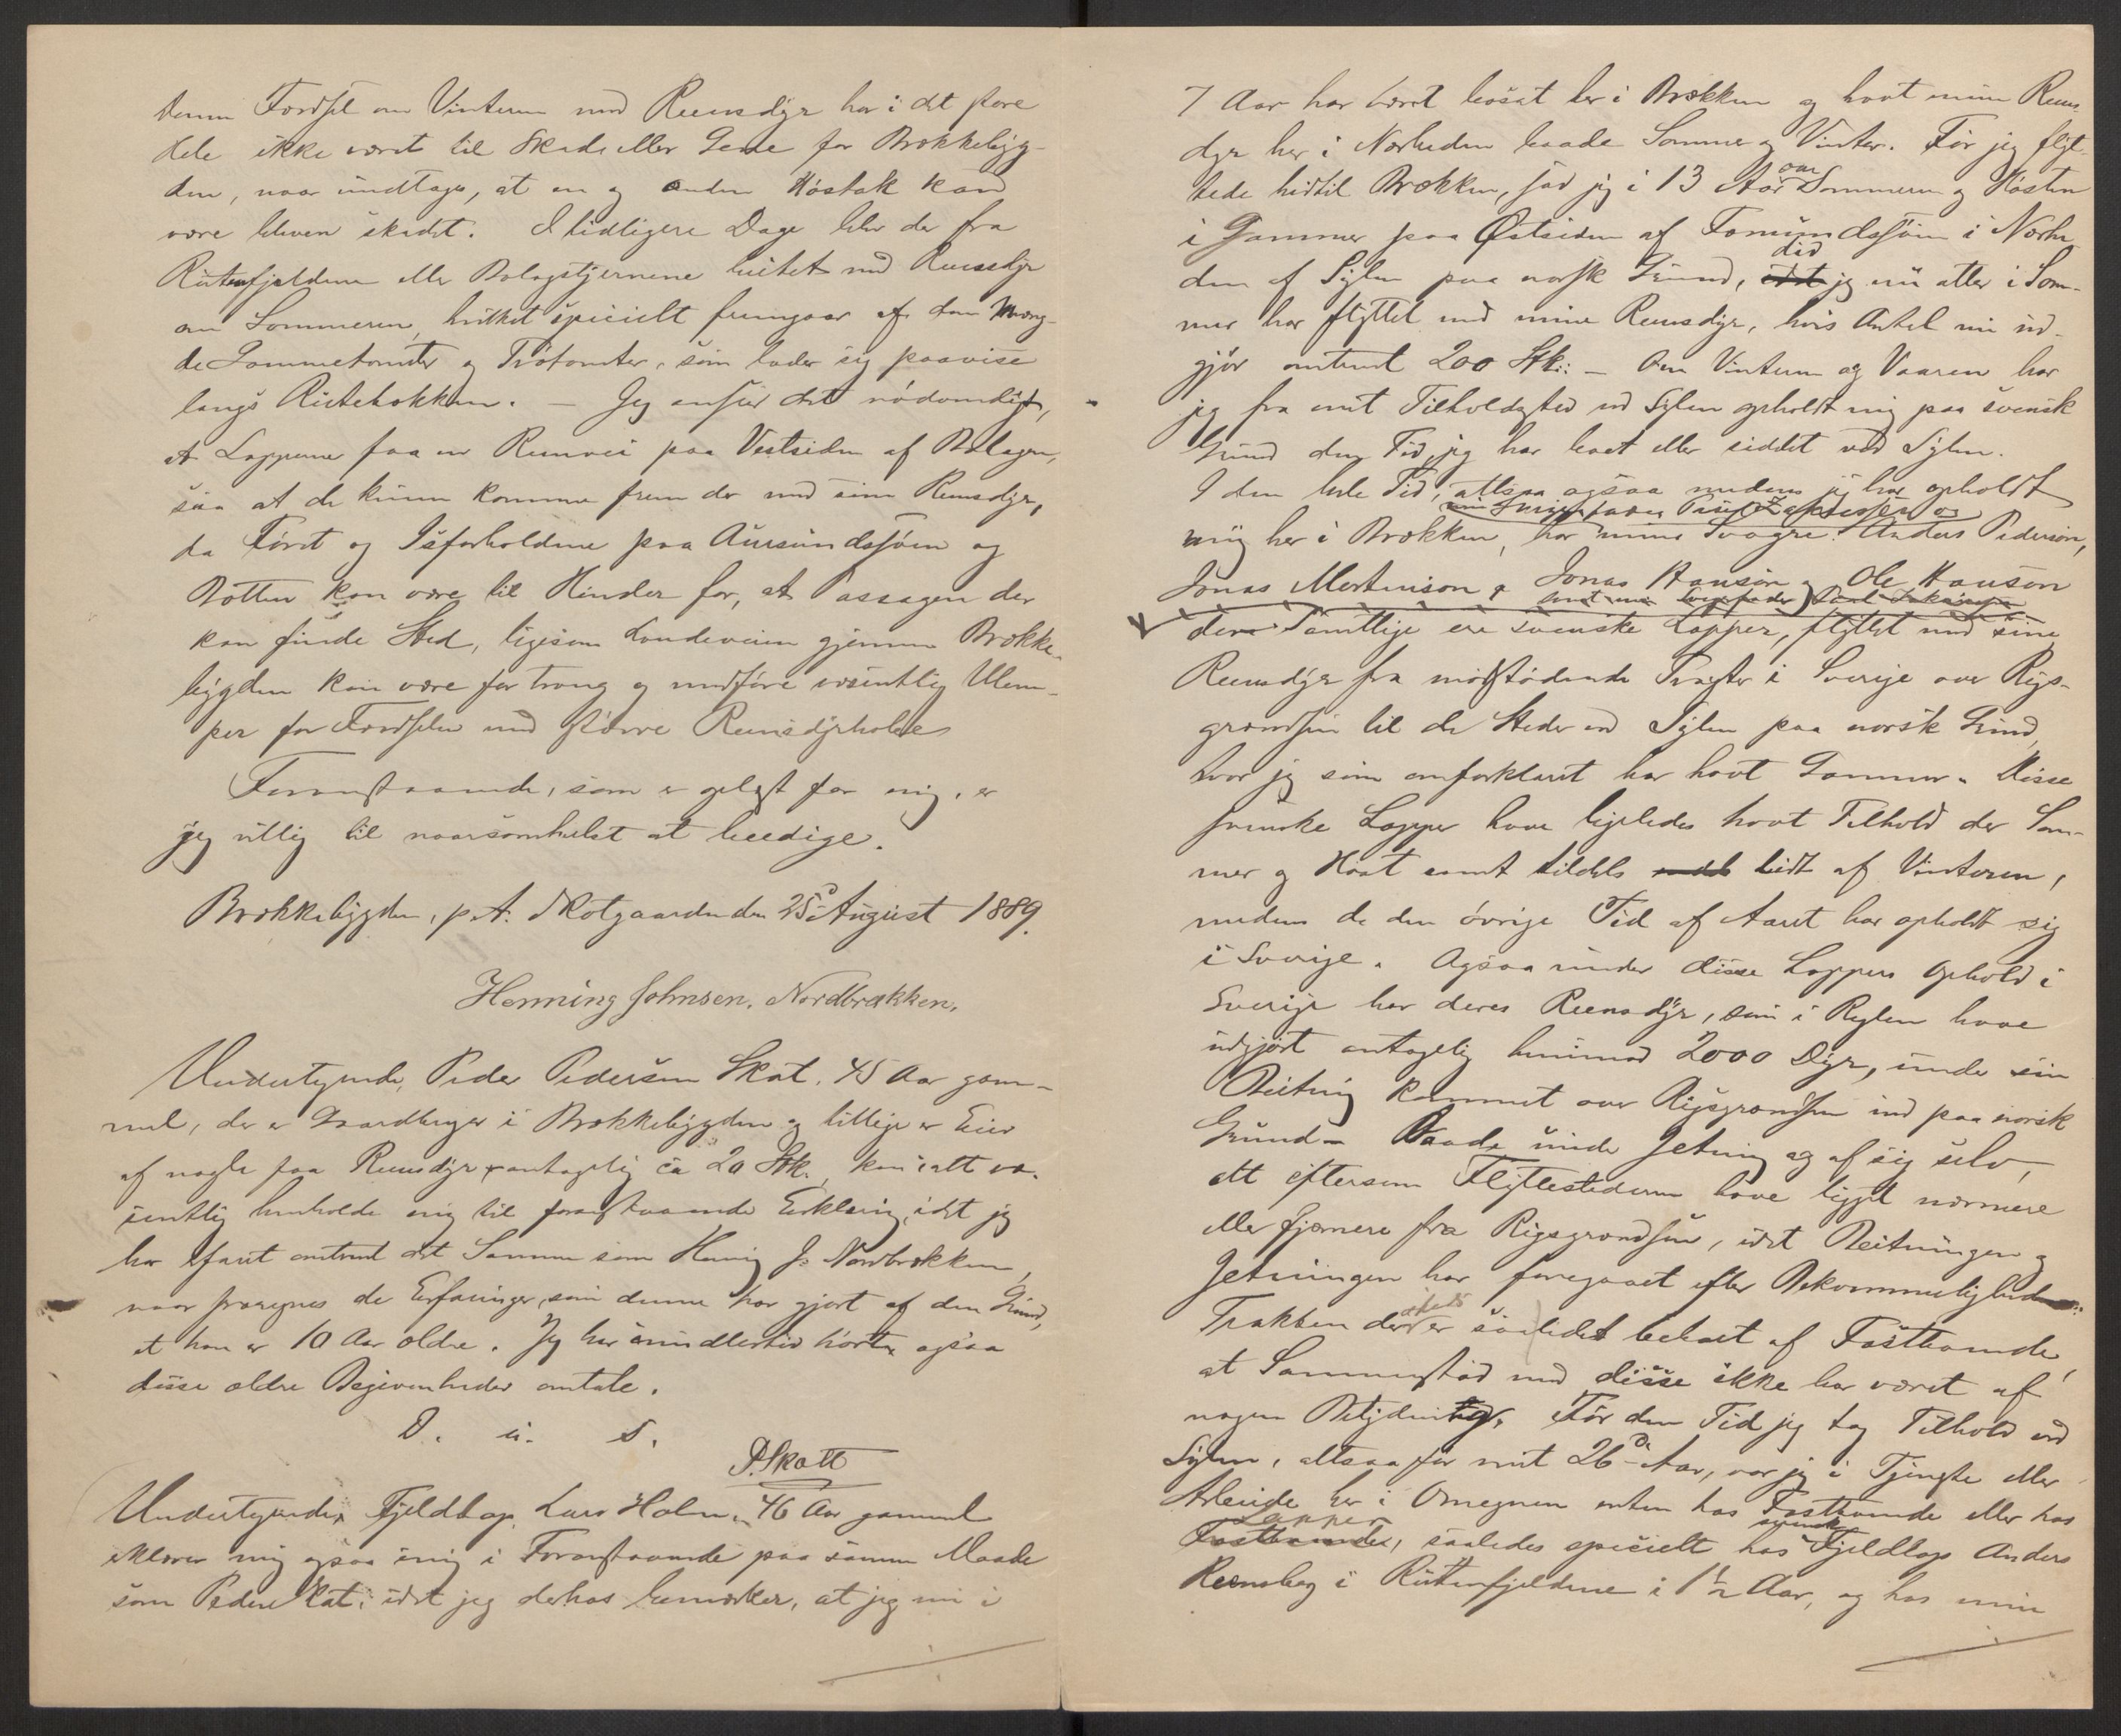 denne Færdsel om Vinteren med Reensdyr har i det store
Hele ikke været til Skade eller Gene for Brækkebyg-
den, naar undtages, at en og anden Høstak kan
være bleven skadet. I tidligere Dage blev der fra
Rutenfjeldene eller Bolagstjernene beitet med Reensdyr
om Sommeren, hvilket specielt fremgaar af den Mæng-
de Gammetomter og Trøtomter, som lader sig paavise
langs Rutebækken. — Jeg anser det nødvendigt,
at Lapperne faa en Reenvei paa Vestsiden af Bolagen,
saa at de kunne komme frem der med sine Reensdyr,
da Føret og Isforholdene paa Aursundsjøen og
Botten kan være til Hinder for, at Passagen der
kan finde Sted, ligesom Landeveien gjennem Brække-
bygden kan være for trang og medføre væsentlig Ulem-
per for Færdselen med større Reensdyrholde
Foranstaaende, som er oplæst for mig, er
jeg villig til naarsomhelst at beedige.
Brækkebygden, p.A. Skotgaarden den 25d August 1889.
Henning Johnsen, Nordbrækken,
Undertegnede, Peder Pedersen Skot, 45 Aar gam-
mel, der er Gaardbruger i Brækkebygden og tillige er Eier
af nogle faa Reensdyr, antagelig ca 20 Stk., kan i alt væ-
sentlig henholde mig til foranstaaende Erklæring, idet jeg
har erfaret omtrent det Samme som Henning J. Nordbrækken,
naar fraregnes de Erfaringer, som denne har gjort af den Grund,
at han er 10 Aar ældre. Jeg har imidlertid hørt ogsaa
disse ældre Begivenheder omtale.
D. u. s.
P. Skott
Undertegnede, Fjeldlap Lars Holm, 46 Aar gammel
erklærer mig ogsaa enig i Foranstaaende paa samme Maade
som Peder Skot, idet jeg derhos bemærker, at jeg nu i
7 Aar har været bosat her i Brækken og havt mine Reens-
dyr her i Nærheden baade Sommer og Vinter. Før jeg flyt-
tede hidtil Brækken, sad jeg i 13 Aar om Sommeren og Høsten
i Gammer paa Østsiden af Femundsjøen i Nærhe-
den af Sylen paa norsk Grund, did jeg nu atter i Som-
mer har flyttet med mine Reensdyr, hvis Antal nu ud-
gjør omtrent 200 Stk: — Om Vinteren og Vaaren har
jeg fra mit Tilholdssted ved Sylen opholdt mig paa svensk
Grund den Tid, jeg har boet eller siddet ved Sylen.
I den hele Tid, altsaa ogsaa medens jeg har opholdt
min Svigerfader
mig her i Brækken, har mine Svogre Anders Pedersen,
Jonas Mortenson, Jonas Hanson og Ole Hanson
samt min Svigerfader
der Samtlige ere svenske Lapper, flyttet med sine
Reensdyr fra modstødende Trakter i Sverige over Rigs-
grændsen til de Steder ved Sylen paa norsk Grund,
hvor jeg som omforklaret har havt Gammer. Disse
svenske Lapper have ligeledes havt Tilhold der Som-
mer og Høst samt tildels lidt af Vinteren,
medens de den øvrige Tid af Aaret har opholdt sig
i Sverige. Ogsaa under disse Lappers Ophold i
Sverige har deres Reensdyr, som i Reglen have
udgjort antagelig henimod 2000 Dyr, under sin
Beitning kommet over Rigsgrændsen ind paa norsk
Grund – Baade under Jetning og af sig selv,
alt eftersom Flyttestederne have ligget nærmere
eller fjernere fra Rigsgrændsen, idet Beitningen og
Jetningen har foregaaet efter Bekvemmelighed
Trakten der er saalidet beboet af Fastboende,
at Sammenstød med disse ikke har været af
nogen Betydning. Før den Tid jeg tog Tilhold ved
Sylen, altsaa før mit 26de Aar, var jeg i Tjeneste eller
Arbeide her i Omegnen enten hos Fastboende eller hos
Lapper
Fastboende, saaledes specielt hos svensk Fjeldlap Anders
Reensberg i Rutenfjeldene i 1½ Aar, og hos min